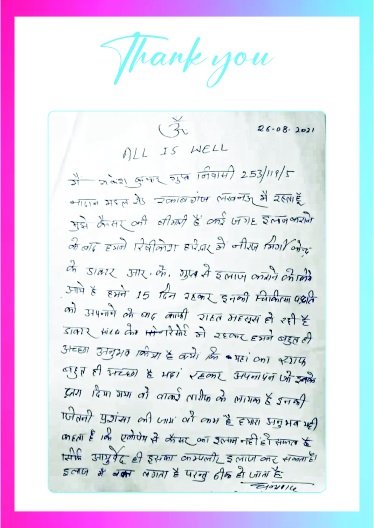 Thank you
ॐ
26.08.2021
ALL IS WELL
मै राकेश कुमार गुप्त निवासी 253/119/5
रोड रकाबगंज लखनऊ मे रहता हूँ
मुझे कैंसर की बीमारी है कई जगह इलाज कराने
के बाद हमने हरिद्वार
के डाक्टर आर. के. गुप्त से इलाज कराने के लिये
आये है हमने 15 दिन रहकर इनकी चिकित्सा पद्धति
को अपनाने के बाद काफी राहत महसूस हो रही है
डाक्टर मे रहकर हमने बहुत ही
अच्छा अनुभव किया है क्यो कि यहां का स्टाफ
बहुत ही अच्छा है यहां रहकर अपनापन जो इनके
द्वारा दिया गया वो वाकई तारीफ के लायक है इनकी
जितनी प्रशंसा की जाय वो कम है हमारा अनुभव यही
कहता है कि एलोपैथ से कैंसर का इलाज नही हो सकता है
सिर्फ आयुर्वेद ही इसका इलाज कर सकता है।
इलाज मे वक्त लगता है परन्तु ठीक हो जाता है